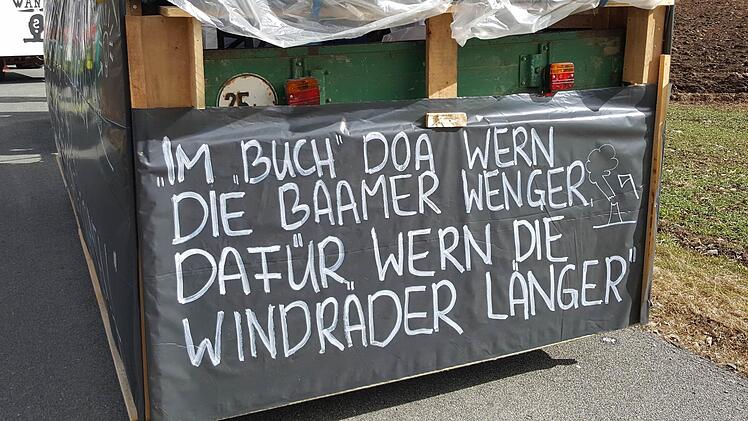 WAN
25
"IM "BUCH" DOA WERN
DIE BAAMER WENGER,
DAFÜR WERN DIE
WINDRÄDER LÄNGER"